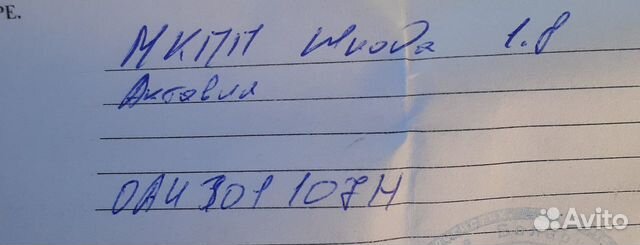 РЕ.
МКПП Шкода 1.8
Актавия
0А4 301 107Н
Avito